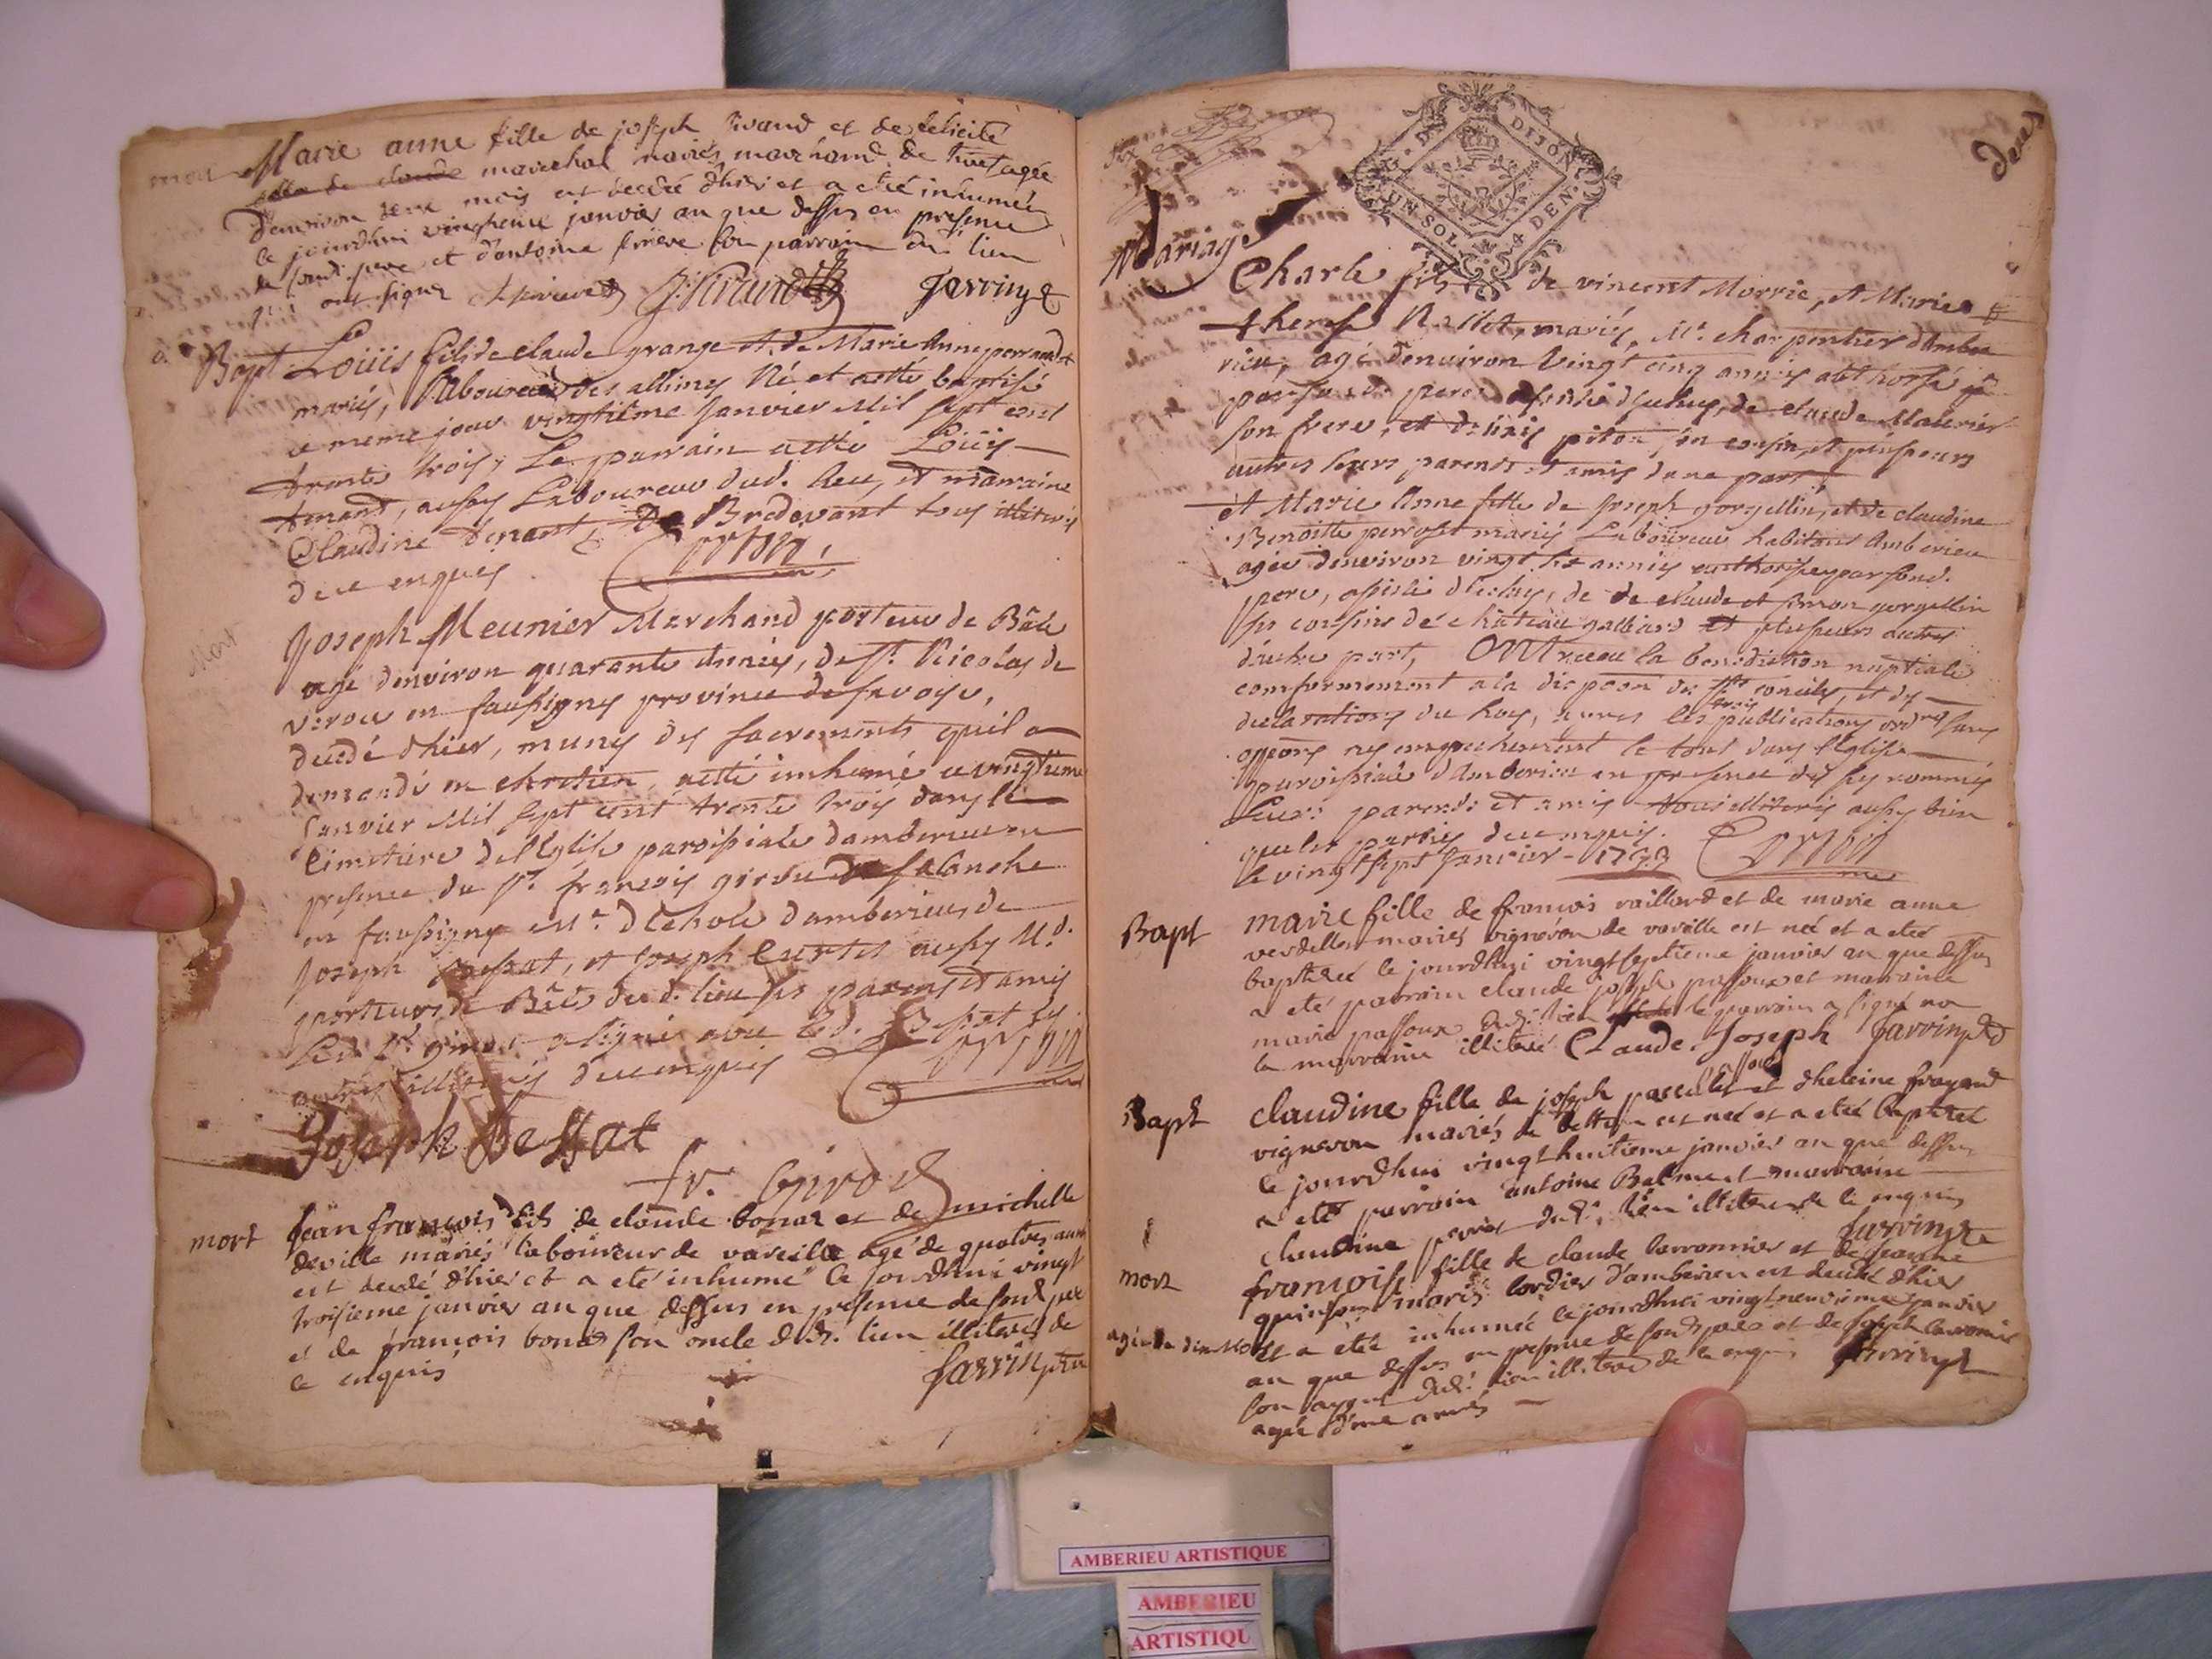 mort Marie anne fille de joseph et de felicité
marechal mariés marchand de agée
d'environ mois est decedé d'hier et a eté inhumée
le jourdhui janvier an que dessus en presence
de sond. pere et d'antoine son parrain dud. lieu
qui ont signé Jarrin
Bapt Loüis fils de claude grange et de Marie Anne
mariés, Laboureur des allimes Né et baptisé
ce meme jour vingtième Janvier Mil sept cent
trente trois, Le parrain aetté Loüis
tenand, aussy Laboureur dud. lieu, et marraine
Claudine tenant, de Bredevant tous illiterés
de ce enquis
Mort
Joseph Meunier Marchand porteur de Bâle
agé d'environ quarante Années, de St. Nicolas de
veroce en faussigny province de savoye,
decedé d'hier, muny des sacrements quil a
demandé en chretien, aetté inhumé ce vingtieme
Janvier Mil sept cent trente trois dans le
Cimetiere de l'Eglise paroissiale damberieu en
presence du Sr. françois girod de salanche
en faussigny Mr. d'Ecole d'amberieu, de
Joseph Bessat, et Joseph Curtet aussy Md.
porteurs de Bâle dud. lieu ses parens et amis
Led. Sr. girod a signé avec led. Bessat les
autres illiterés de ce enquis
Joseph Bessat
fr. Girod
mort Jean françois fils de claude bonaz et de michelle
deville mariés laboureur de vareille agé de quatres ans
est decedé d'hier et a eté inhumé le jourdhui vingt
troisieme janvier an que dessus en presence de sond. pere
et de françois bonaz son oncle dud. lieu illiterés de
ce enquis Jarrin
G. DE DIJON
UN SOL. 4 DEN.
Deux
Mariage
Charle fils de vincent Morrie, et Marie
therese Nallet, mariés, Mr. charpentier d'Ambe
rieu, agé d'environ vingt cinq années authorisé
par sond. pere assisté d'iceluy, de claude
son frere, et de piton son cousin, et plusieurs
autres leurs parents et amis d'une part
et Marie Anne fille de Joseph gorgellin, et de claudine
Benoitte perrozet mariés Laboureur habitans Amberieu
agée d'environ vingt six années authorisée par sond.
pere, assisté d'iceluy, de de claude et simon gorgellin
ses cousins de chateau gaillard et plusieurs autres
d'autre part, ONt receu la benediction nuptiale
conformement a la dispoon des Sts conciles, et des
declarations du Roy, apres les trois publications ordres sans
oppons ny empechement le tout dans l'Eglise
paroissiale d'Amberieu en presence des sus nommés
leurs parents et amis tous illiterés aussy bien
que les parties de ce enquis.
le vingt sept Janvier - 1733
Bapt marie fille de francois vaillard et de marie anne
verdellet mariés vigneron de vareille est née et a eté
baptisée le jourdhui vingt septieme janvier an que dessus
a eté parrain claude joseph passoux et marraine
marie passoux dud. lieu le parrain a signé non
la marraine illiterée Claude Joseph passoux Jarrin
Bapt claudine fille de joseph et d'heleine frayand
vigneron mariés de est née et a eté baptisée
le jourdhui vingt huitieme janvier an que dessus
a eté parrain antoine et marraine
claudine perret dud. lieu illiterés de ce enquis
Jarrin
mort françoise fille de claude barronnier et de jeanne
quinson mariés cordier d'amberieu est decedé d'hier
et a eté inhumée le jourdhui vingt neuvieme janvier
au que dessus en presence de sond. pere et de joseph
son dud. lieu illiteré de ce enquis Jarrin
agée d'une année
AMBERIEU ARTISTIQUE
AMBERIEU
ARTISTIQU